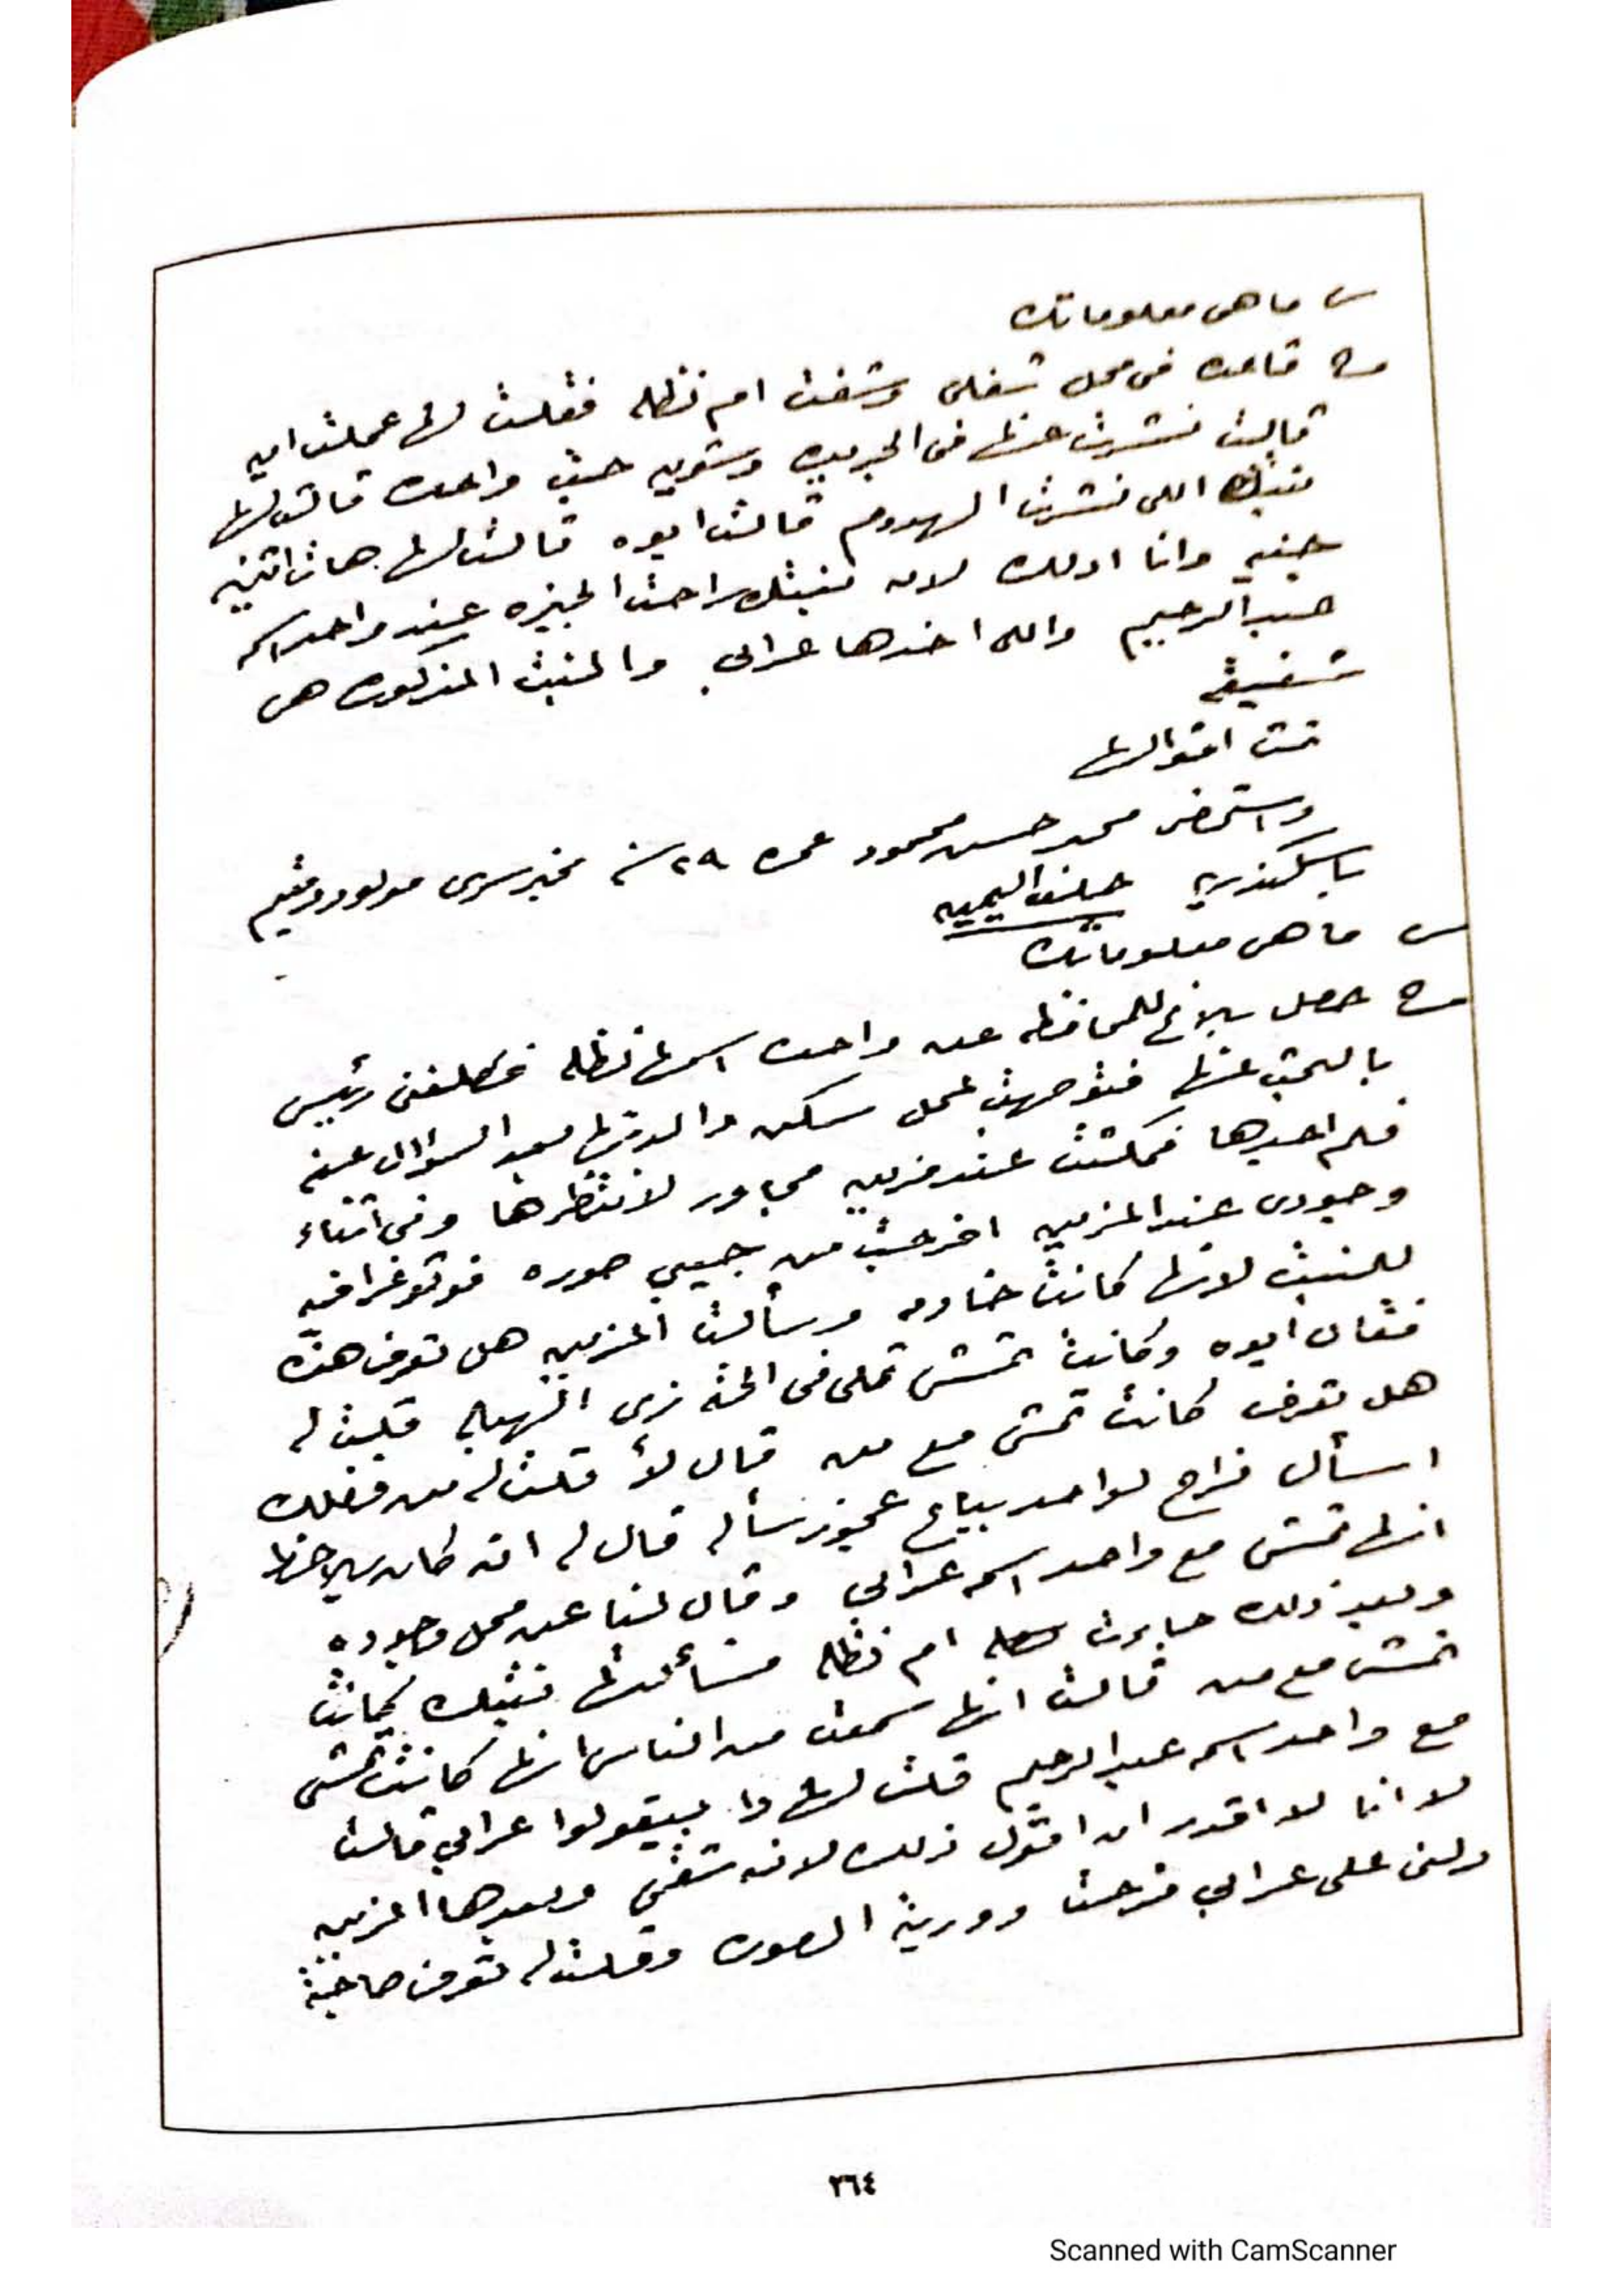 س ما هى معلوماتك
ج قاعده فى محل شغلى وشفت ام نظله فقلت لها عملت ايه
قالت نشرت عنها فى الجريده وشويه جت واحده قالت لها
بنتك اللى نشرت الهدوم قالت ايوه قالت لها هات اتنين
جنيه وانا ادلك لان بنتك راحت الجيزه عند واحد اسمه
عبد الرحيم واللى اخدها عرابى والبنت المذكوره هى
شفيقه
تمت اقوالها
واستحضر محمد حسن محمود عمره ٢٩ سنه مخبر سرى مولود ومقيم
باسكندريه حلف اليمين
س ما هى معلوماتك
ج حصل بلاغ للمحافظه عن واحده اسمها نظله فكلفنى رئيس
بالبحث عنها فتوجهت لمحل سكن والدتها بعد السؤال عنه
فلم اجدها فمكثت عند مزين مجاور لانتظرها وفى اثناء
وجودى عند المزين اخرجت من جيبى صوره فوتوغرافيه
للبنت لانها كانت خادمه وسألت المزين هل تعرف هذه
فقال ايوه وكانت تمشى تملى فى الحته زى الهبله قلت له
هل تعرف كانت تمشى مع من قال لأ قلت له من فضلك
اسأل فراح لواحد بياع عجوز سأله قال له انه كان يلاحظ
انها تمشى مع واحد اسمه عرابى وقال لنا عن محل وجوده
وبعد ذلك جاءت ام نظله فسألتها بنتك كانت
تمشى مع من قالت انها سمعت من الناس انها كانت تمشى
مع واحد اسمه عبد الرحيم قلت لها دا بيقولوا عرابى قالت
لا انا لا اقدر ان اقول ذلك لانه شقى وبعدها المزين
دلنى على عرابى فرحت ووريته الصوره وقلت له تعرف صاحبة
٢٦٤
Scanned with CamScanner